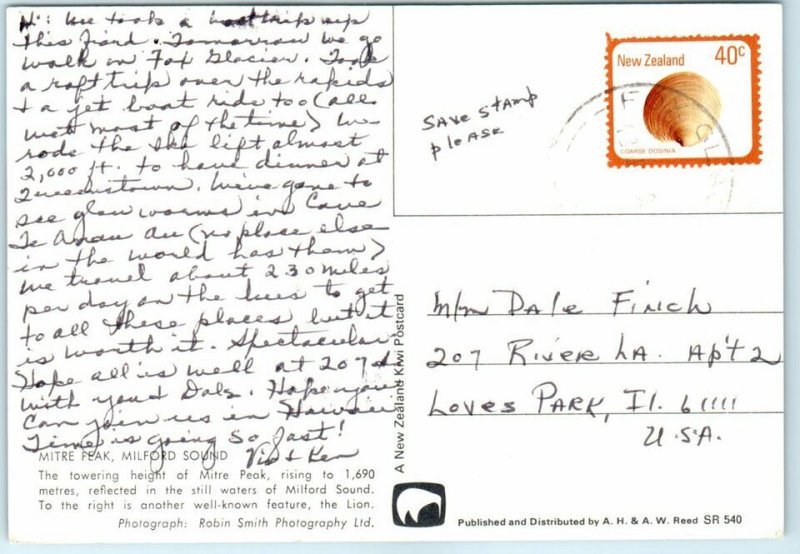 Hi: We took a boat trip up
this fiord. Tomorrow we go
walk on Fox Glacier. Took
a raft trip over the rapids
+ a jet boat ride too (all
wet most of the time) We
rode the Ski lift almost
2,000 ft. to have dinner at
Queenstown. We've gone to
see glow worms in Cave
Te Anau Au (no place else
in the world has them)
We travel about 230 miles
per day on the bus to get
to all these places but it
is worth it. Spectacular
Hope all is well at 207 +
with you & Dale. Hope you
can join us in Hawaii
Time is going so fast!
Vi & Ken
MITRE PEAK, MILFORD SOUND
The towering height of Mitre Peak, rising to 1,690
metres, reflected in the still waters of Milford Sound.
To the right is another well-known feature, the Lion.
Photograph: Robin Smith Photography Ltd.
A New Zealand Kiwi Postcard
SAVE STAMP
PLEASE
New Zealand 40c
COARSE DOSINIA
M/M DALE FINCH
207 RIVER LA. APT 2
LOVES PARK, IL. 61111
U.S.A.
Published and Distributed by A. H. & A. W. Reed SR 540